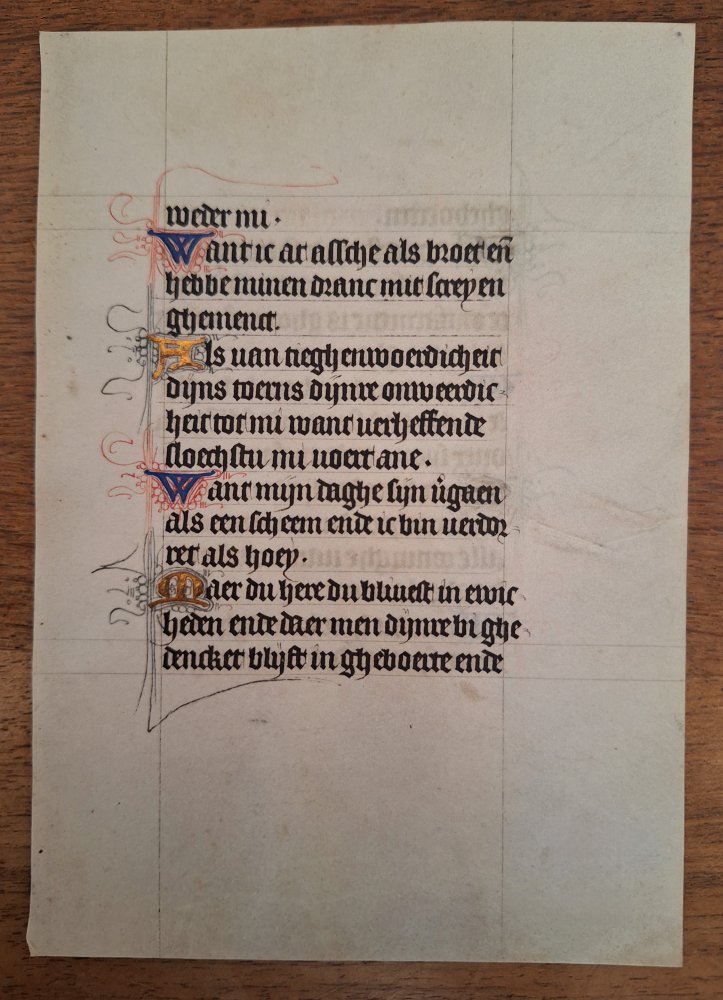 weder mi ·
Want ic at assche als broet en̄
hebbe minen dranc mit screyen
ghemenct.
Als van tieghenwoerdicheit
dijns toerns dijnre onweerdic
heit tot mi want verheffende
sloechstu mi voert ane ·
Want mijn daghe sijn v̉gaen
als een scheem ende ic bin verdor
ret als hoey ·
Maer du here du bliuest in ewic
heden ende daer men dijnre bi ghe
dencket blijft in gheboerte ende